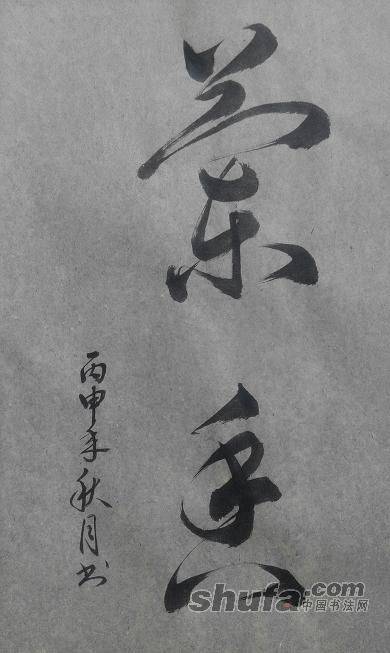 蘭
丙申年秋月书
shufa.com
中国书法网